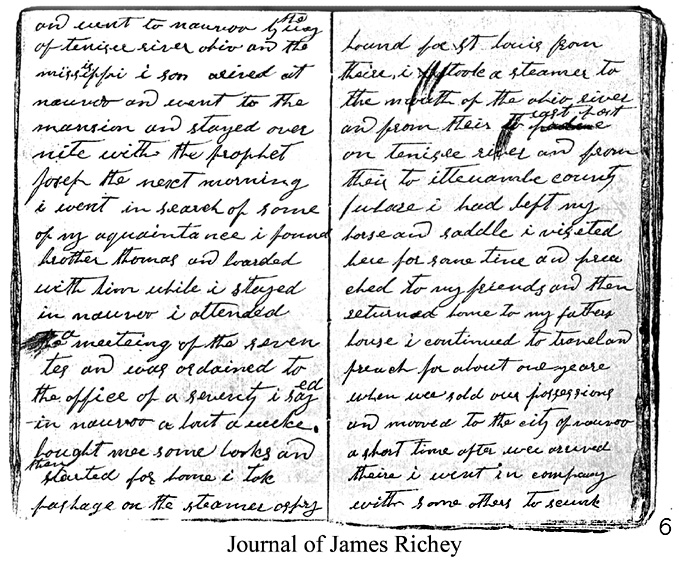 and went to nauvoo by the way
of tenisee river ohio and the
missisippi i son arived at
nauvoo and went to the
mansion and stayed over
nite with the prophet
Josef the next morning
i went in search of some
of my aquaintance i found
brother thomas and boarded
with him while i stayed
in nauvoo i attended
a meeteing of the seven
tes and was ordained to
the office of a seventy i sayed
in nauvoo a bout a weeke.
bought mee some books and
then started for home i tok
pashage on the steamer osprey
bound for st louis from
theire i took a steamer to
the mouth of the ohio river
and from their to east port
on tenisee river and from
their to ittewambe county
whare i had left my
horse and saddle i viseted
here for some time and prea
ched to my friends and then
returned home to my fathers
house i continued to travel and
preach for about one yeare
when wee sold our possessions
and mooved to the city of nauvoo
a short time after wee arrived
theire i went in company
with some others to
6
Journal of James Richey